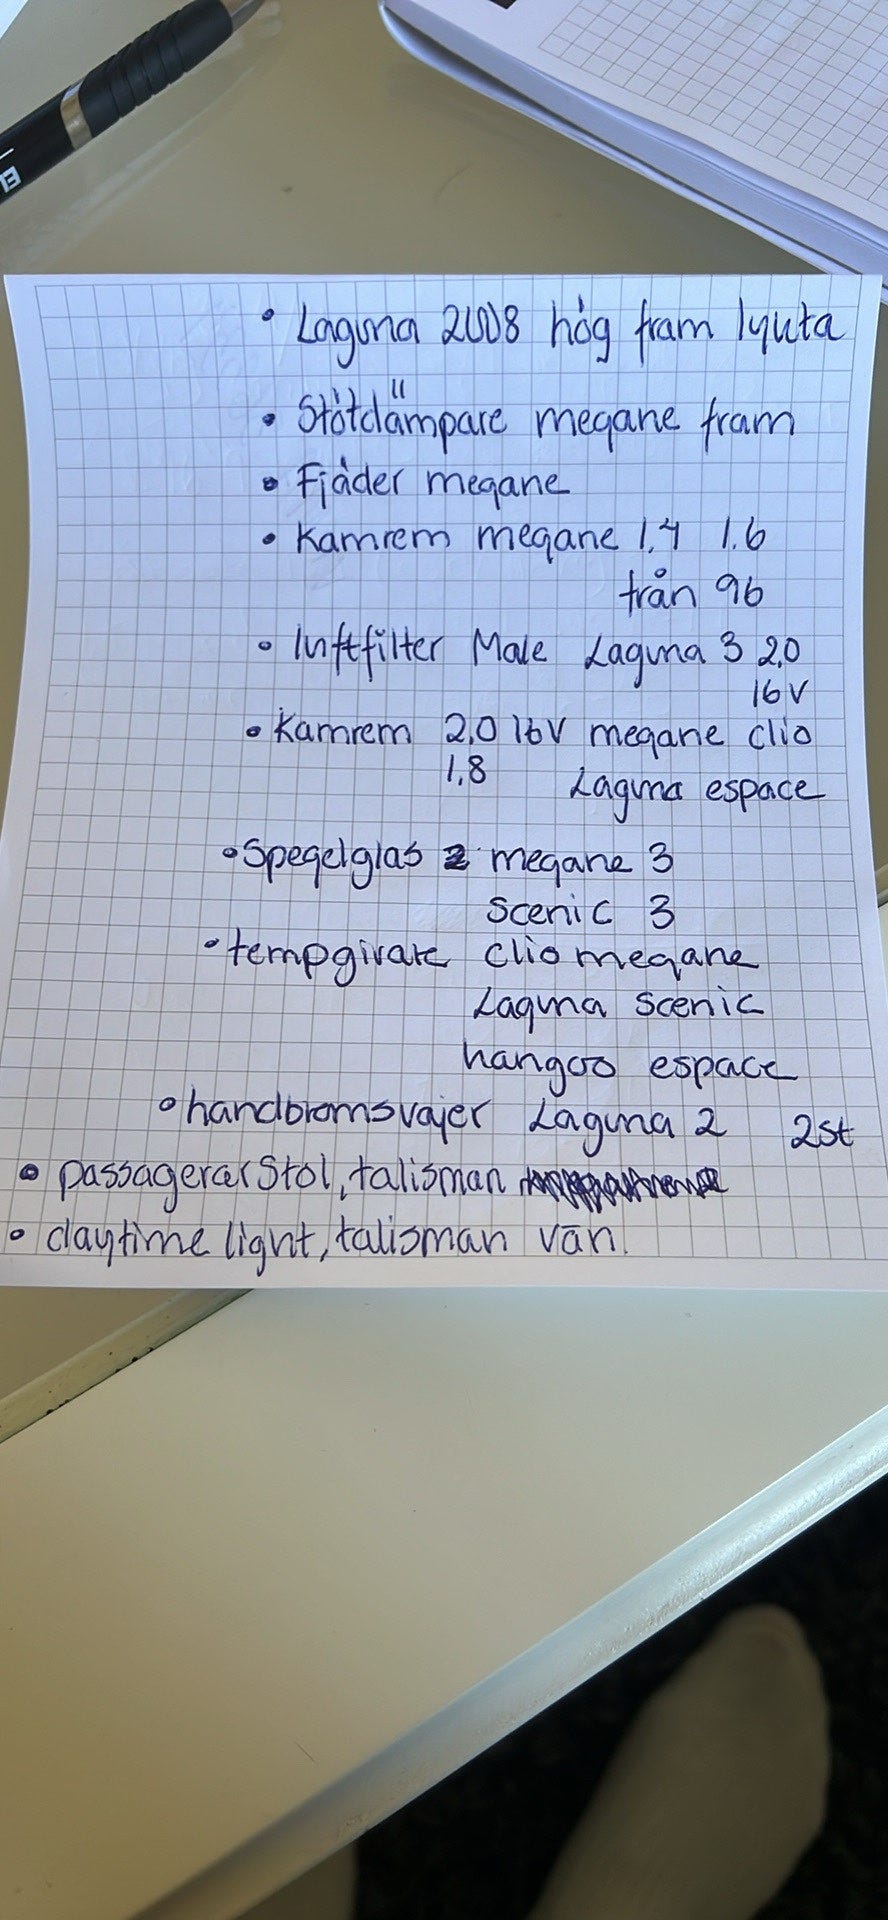 • Laguna 2008 hög fram lyuta
• Stötdämpare megane fram
• Fjäder megane
• Kamrem megane 1,4 1.6
från 96
• luftfilter Male Laguna 3 2,0
16 V
• Kamrem 2,0 16V megane clio
1,8 Laguna espace
• Spegelglas 2 megane 3
Scenic 3
• tempgivare Clio megane
Laguna Scenic
kangoo espace
• handbromsvajer Laguna 2 2st
• passagerar Stol, talisman
• daytime light, talisman vän.